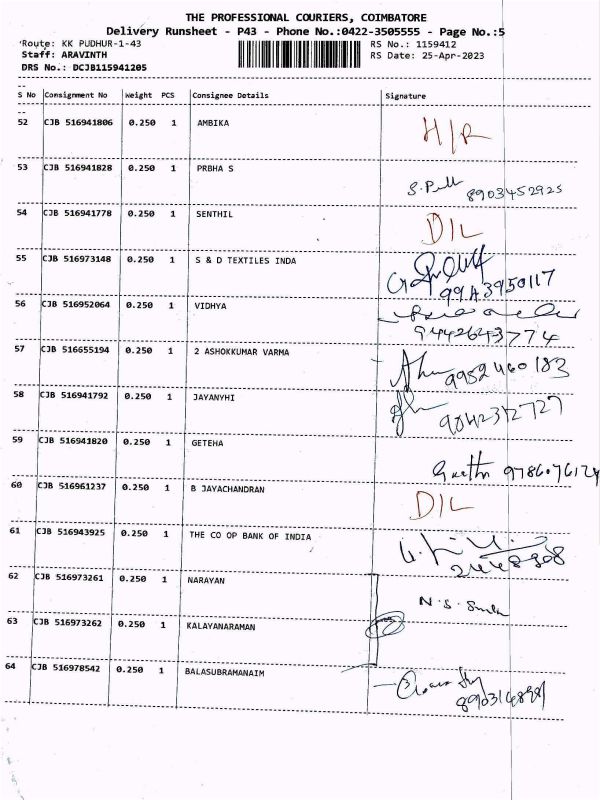 THE PROFESSIONAL COURIERS, COIMBATORE
Delivery Runsheet - P43 - Phone No.:0422-3505555 - Page No.:5
Route: KK PUDHUR-1-43
RS No.: 1159412
Staff: ARAVINTH
RS Date: 25-Apr-2023
DRS No.: DCJB115941205
S No Consignment No Weight PCS Consignee Details Signature
52 CJB 516941806 0.250 1 AMBIKA H/R
53 CJB 516941828 0.250 1 PRBHA S 8903452925
54 CJB 516941778 0.250 1 SENTHIL D/L
55 CJB 516973148 0.250 1 S & D TEXTILES INDA
56 CJB 516952064 0.250 1 VIDHYA
57 CJB 516655194 0.250 1 2 ASHOKKUMAR VARMA 9952460183
58 CJB 516941792 0.250 1 JAYANYHI
59 CJB 516941820 0.250 1 GETEHA
60 CJB 516961237 0.250 1 B JAYACHANDRAN D/L
61 CJB 516943925 0.250 1 THE CO OP BANK OF INDIA
62 CJB 516973261 0.250 1 NARAYAN N.S.
63 CJB 516973262 0.250 1 KALAYANARAMAN
64 CJB 516978542 0.250 1 BALASUBRAMANAIM